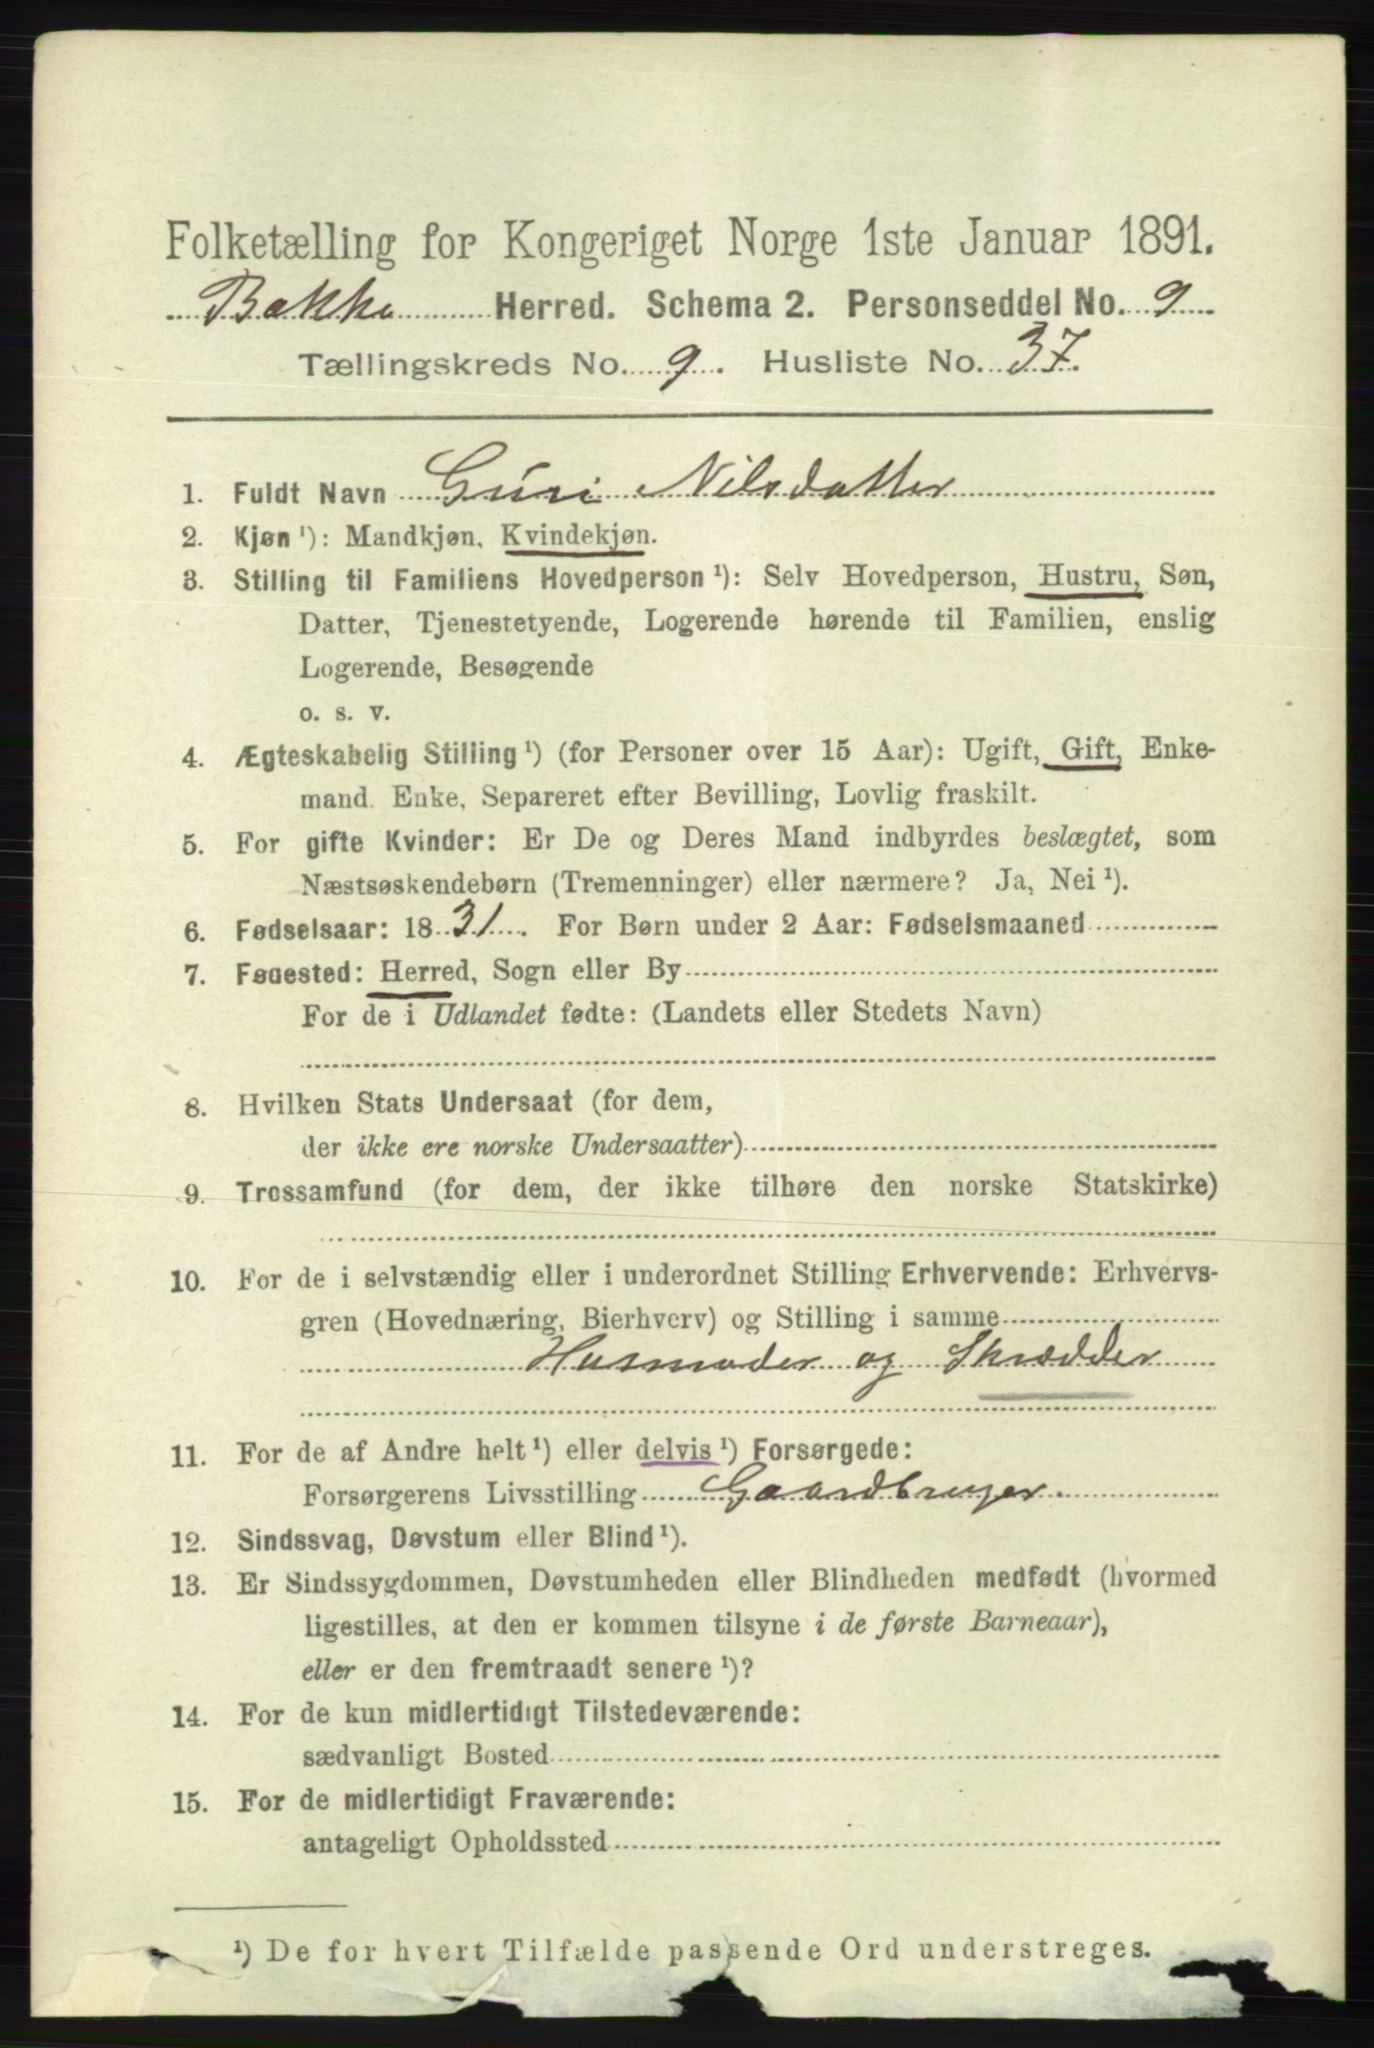 Folketælling for Kongeriget Norge 1ste Januar 1891.
Bakke Herred. Schema 2. Personseddel No. 9
Tællingskreds No. 9. Husliste No. 37.
1. Fuldt Navn Guri Nilsdatter
2. Kjøn ¹): Mandkjøn, Kvindekjøn.
3. Stilling til Familiens Hovedperson ¹): Selv Hovedperson, Hustru, Søn,
Datter, Tjenestetyende, Logerende hørende til Familien, enslig
Logerende, Besøgende
o. s. v.
4. Ægteskabelig Stilling ¹) (for Personer over 15 Aar): Ugift, Gift, Enke-
mand, Enke, Separeret efter Bevilling, Lovlig fraskilt.
5. For gifte Kvinder: Er De og Deres Mand indbyrdes beslægtet, som
Næstsøskendebørn (Tremenninger) eller nærmere? Ja, Nei ¹).
6. Fødselsaar: 1831. For Børn under 2 Aar: Fødselsmaaned
7. Fødested: Herred, Sogn eller By
For de i Udlandet fødte: (Landets eller Stedets Navn)
8. Hvilken Stats Undersaat (for dem,
der ikke ere norske Undersaatter)
9. Trossamfund (for dem, der ikke tilhøre den norske Statskirke)
10. For de i selvstændig eller i underordnet Stilling Erhvervende: Erhvervs-
gren (Hovednæring, Bierhverv) og Stilling i samme
Husmoder og Skrædder
11. For de af Andre helt ¹) eller delvis ¹) Forsørgede:
Forsørgerens Livsstilling Gaardbruger.
12. Sindssvag, Døvstum eller Blind ¹).
13. Er Sindssygdommen, Døvstumheden eller Blindheden medfødt (hvormed
ligestilles, at den er kommen tilsyne i de første Barneaar),
eller er den fremtraadt senere ¹)?
14. For de kun midlertidigt Tilstedeværende:
sædvanligt Bosted
15. For de midlertidigt Fraværende:
antageligt Opholdssted
¹) De for hvert Tilfælde passende Ord understreges.